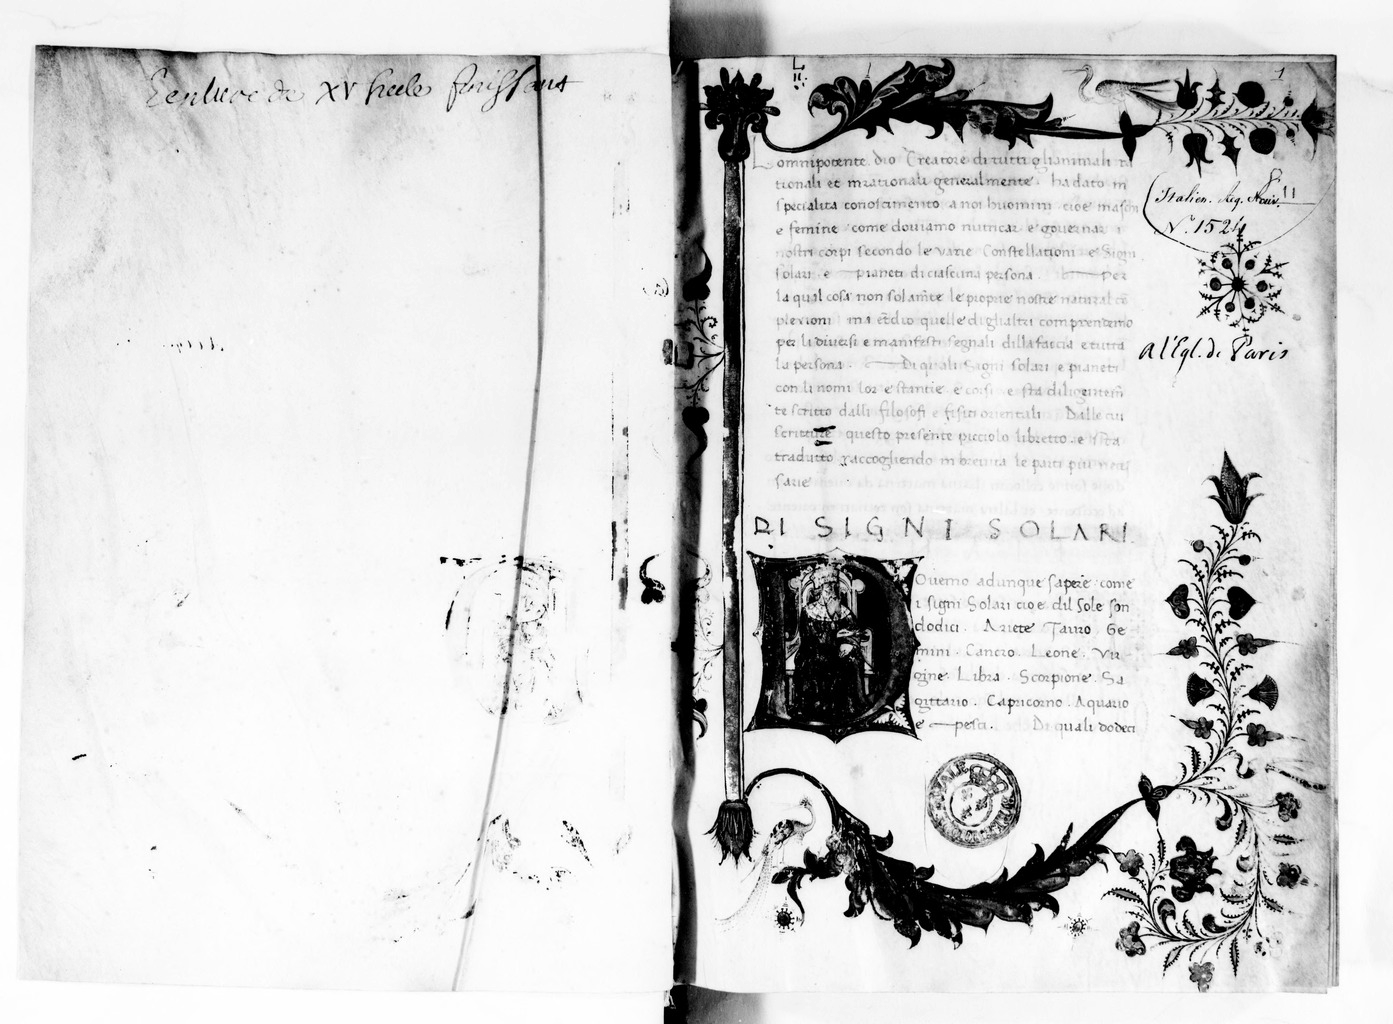 Ecriture de XV siecle finissant
1
Lomnipotente dio Creatore di tutti gli animali ra
tionali et inrationali generalmente ha dato in
specialita conoscimento a noi huomini cioe mascħ
e femine come douiamo nutricar e gouernar i
nostri corpi secondo le varie Constellationi e Signi
solari e pianeti di ciascuna persona . Per
la qual cosa non solam̃te le proprie nostre natural cõ
plexioni ma etdio quelle di gli altri comprendemo
per li diuersi e manifesti segnali dilla faccia e tutta
la persona . Di quali Signi solari e pianeti
con li nomi lor e stantie e corsi e sta diligentem̃
te scritto dalli filosofi e fisici orientali Dalle cui
scritture questo presente picciolo libretto e stá
tradutto raccogliendo in breuita le parti piu neces
sarie
Italien. Reg. Acius. 11
N.° 1524
a l'Egl. de Paris
DI SIGNI SOLARI.
DOuemo adunque sapere come
i signi Solari cio e dil Sole son
dodici . Ariete Tauro Ge
mini . Cancro . Leone . Vir
gine . Libra . Scorpione . Sa
gittario . Capricorno . Aquario
e pesci . Di quali dodeci